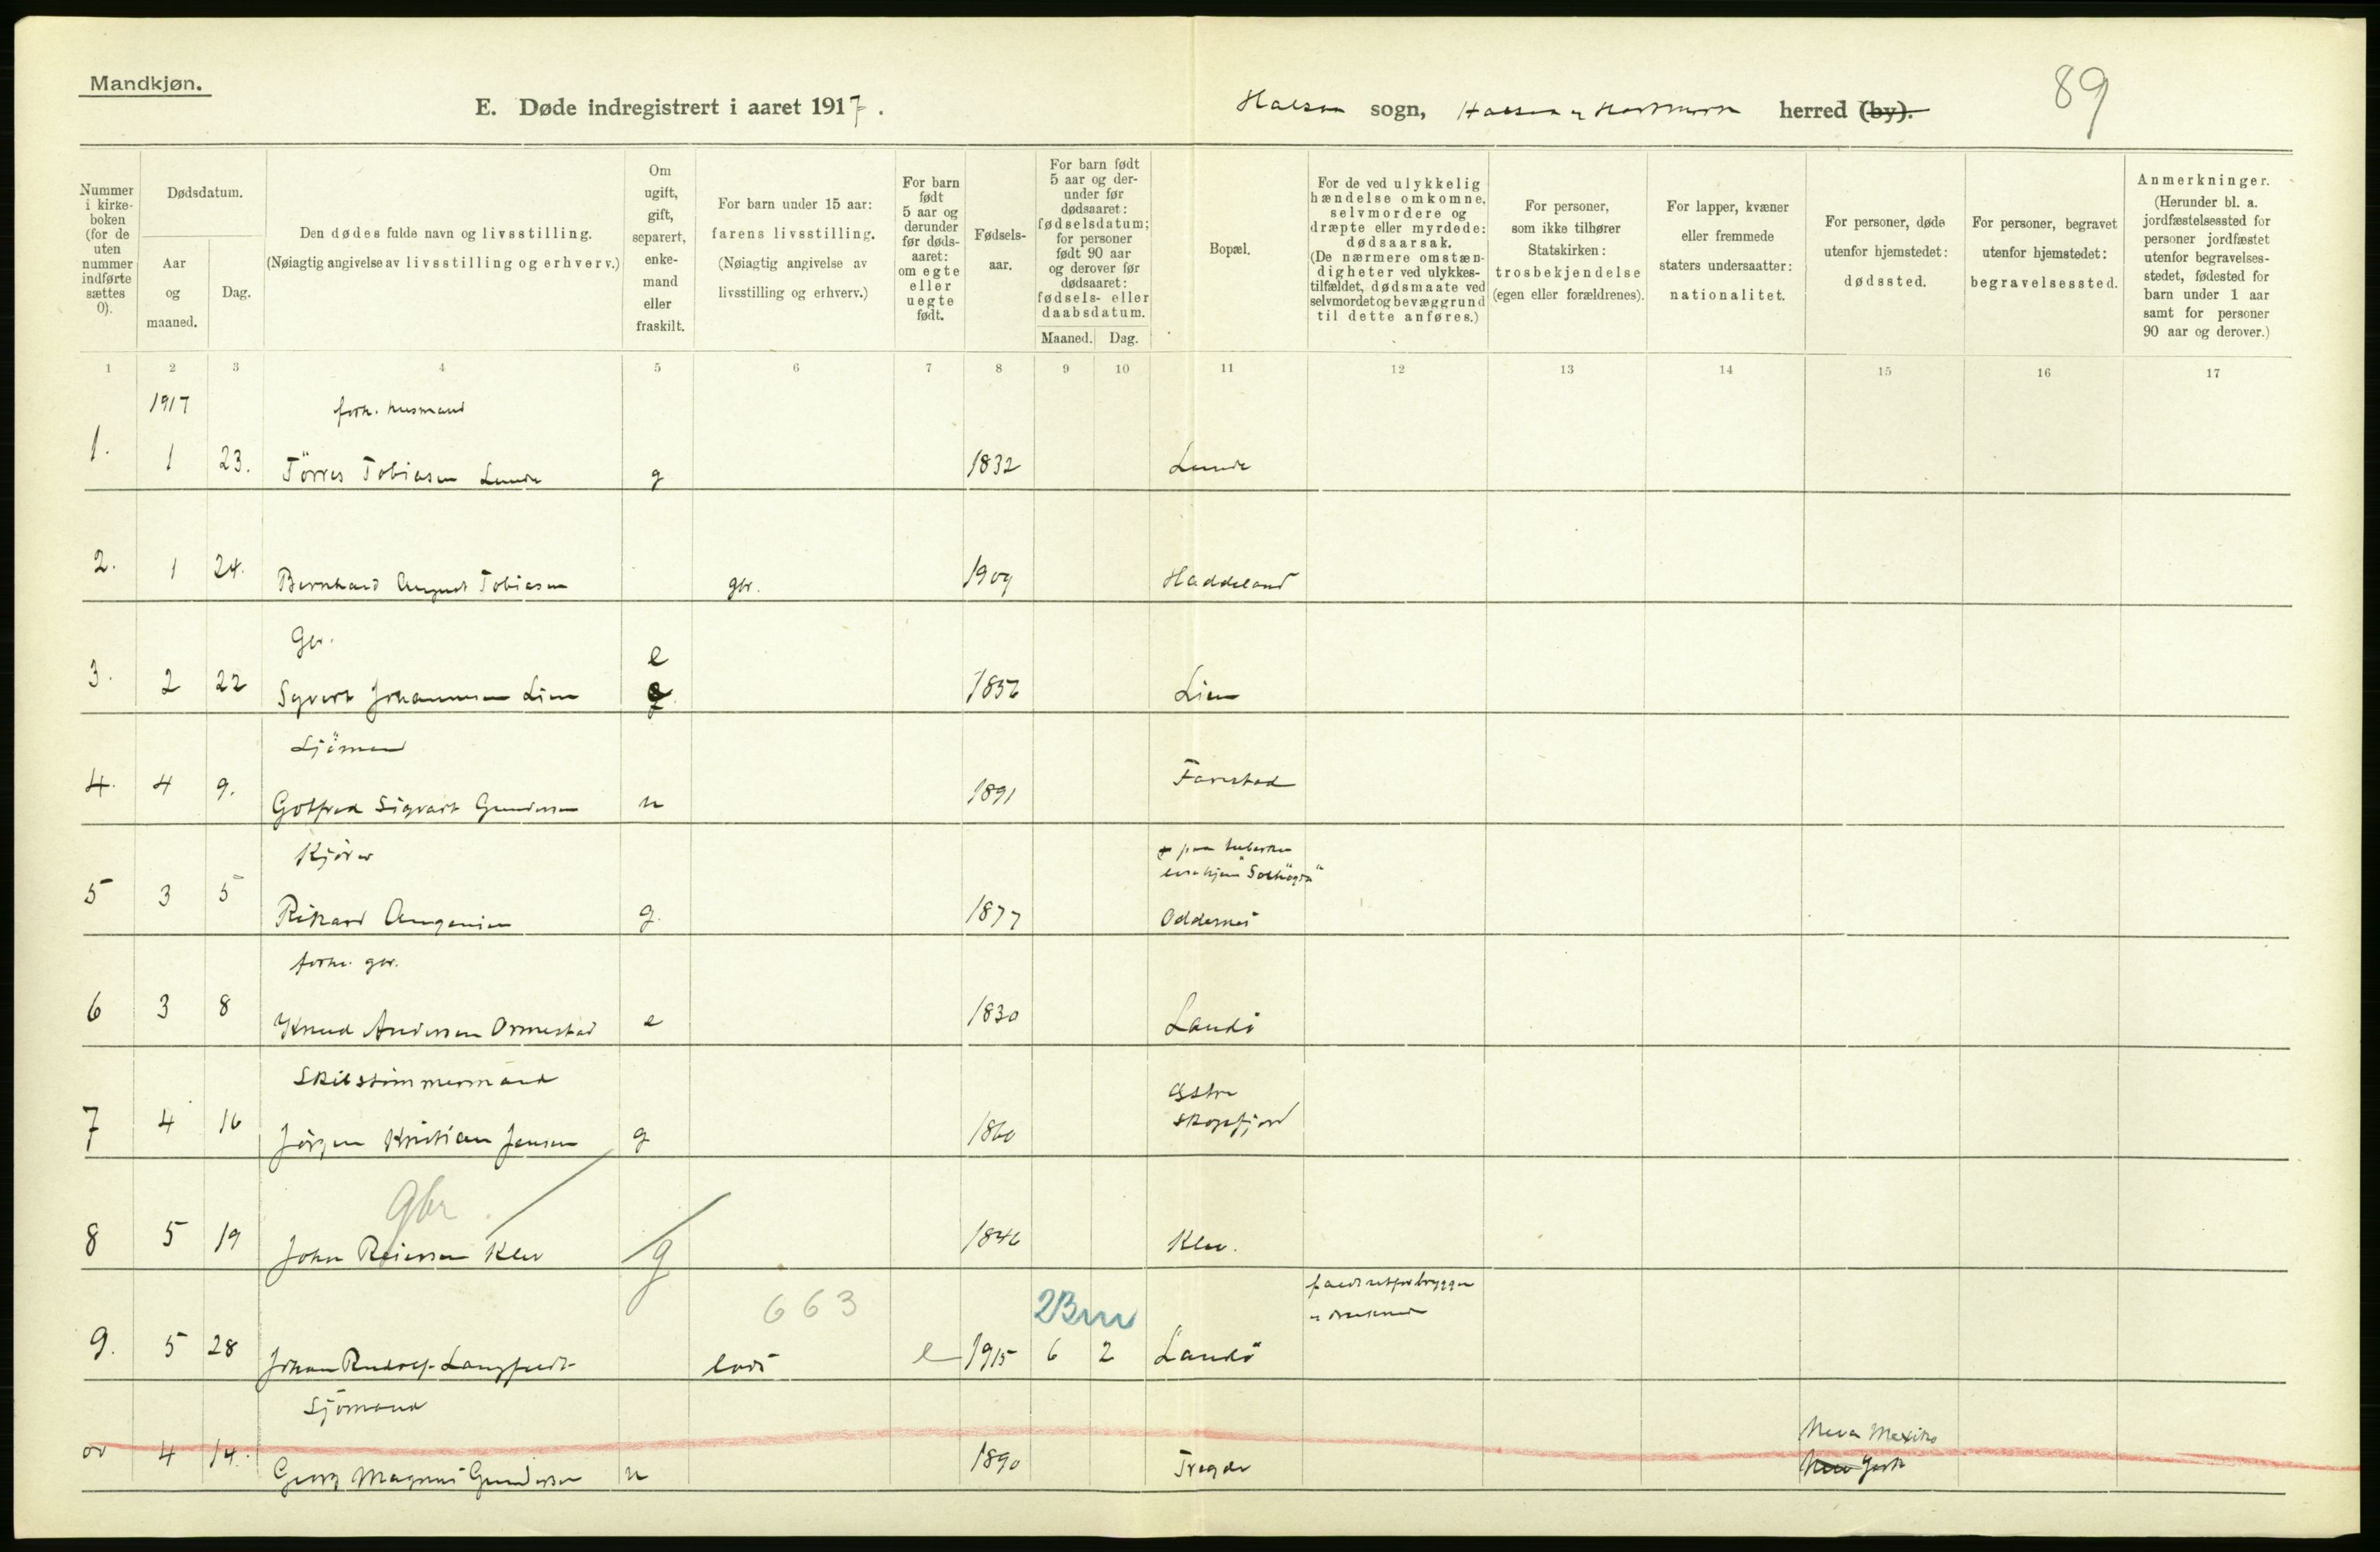 Mandkjøn.
E. Døde indregistrert i aaret 1917. Halsaa sogn, Halsaa og Hartmark herred (by). 89
Nummer i kirke-boken (for de uten nummer indførte sættes 0).
Dødsdatum.
Aar og maaned.
Dag.
Den dødes fulde navn og livsstilling.
(Nøiagtig angivelse av livsstilling og erhverv.)
Om ugift, gift, separert, enke-mand eller fraskilt.
For barn under 15 aar: farens livsstilling.
(Nøiagtig angivelse av livsstilling og erhverv.)
For barn født 5 aar og derunder før døds-aaret: om egte eller uegte født.
Fødsels-aar.
For barn født 5 aar og der-under før dødsaaret: fødselsdatum; for personer født 90 aar og derover før dødsaaret: fødsels- eller daabsdatum.
Maaned. Dag.
Bopæl.
For de ved ulykkelig hændelse omkomne, selvmordere og dræpte eller myrdede: dødsaarsak.
(De nærmere omstæn-digheter ved ulykkes-tilfældet, dødsmaate ved selvmordet og bevæggrund til dette anføres.)
For personer, som ikke tilhører Statskirken: trosbekjendelse (egen eller forældrenes).
For lapper, kvæner eller fremmede staters undersaatter: nationalitet.
For personer, døde utenfor hjemstedet: dødssted.
For personer, begravet utenfor hjemstedet: begravelsessted.
Anmerkninger.
(Herunder bl. a. jordfæstelsessted for personer jordfæstet utenfor begravelses-stedet, fødested for barn under 1 aar samt for personer 90 aar og derover.)
1 2 3 4 5 6 7 8 9 10 11 12 13 14 15 16 17
1917 forh. husmand
1. 1 23. Törres Tobiasen Lunde g 1832 Lunde
2. 1 24. Bernhard August Tobiasen gbr. 1909 Haddeland
Gbr. e
3. 2 22 Syvert Johannesen Lien g. 1856 Lien
Sjömand
4. 4 9. Gotfred Sigvart Gundersen u 1891 Farestad
Kjörer
† paa tuberku
losehjem "Solhögda"
5 3 5 Rikard Augensen g. 1877 Oddernes
forh. gbr.
6 3 8 Knud Andersen Ormestad e 1830 Landö
Skibstömmermand
Østre
7 4 16 Jörgen Kristian Jensen g 1860 Skogsfjord
gbr.
8 5 19 John Reiersen Klev g 1846 Klev.
663 2Bm faldt utfor bryggen
og druknede
9. 5 28 Johan Rudolf Langfeldt lods e 1915 6 2 Landö
Sjömand
Neva Mexiko
0 4 14. Georg Magnus Gundersen u 1890 Tregde New York